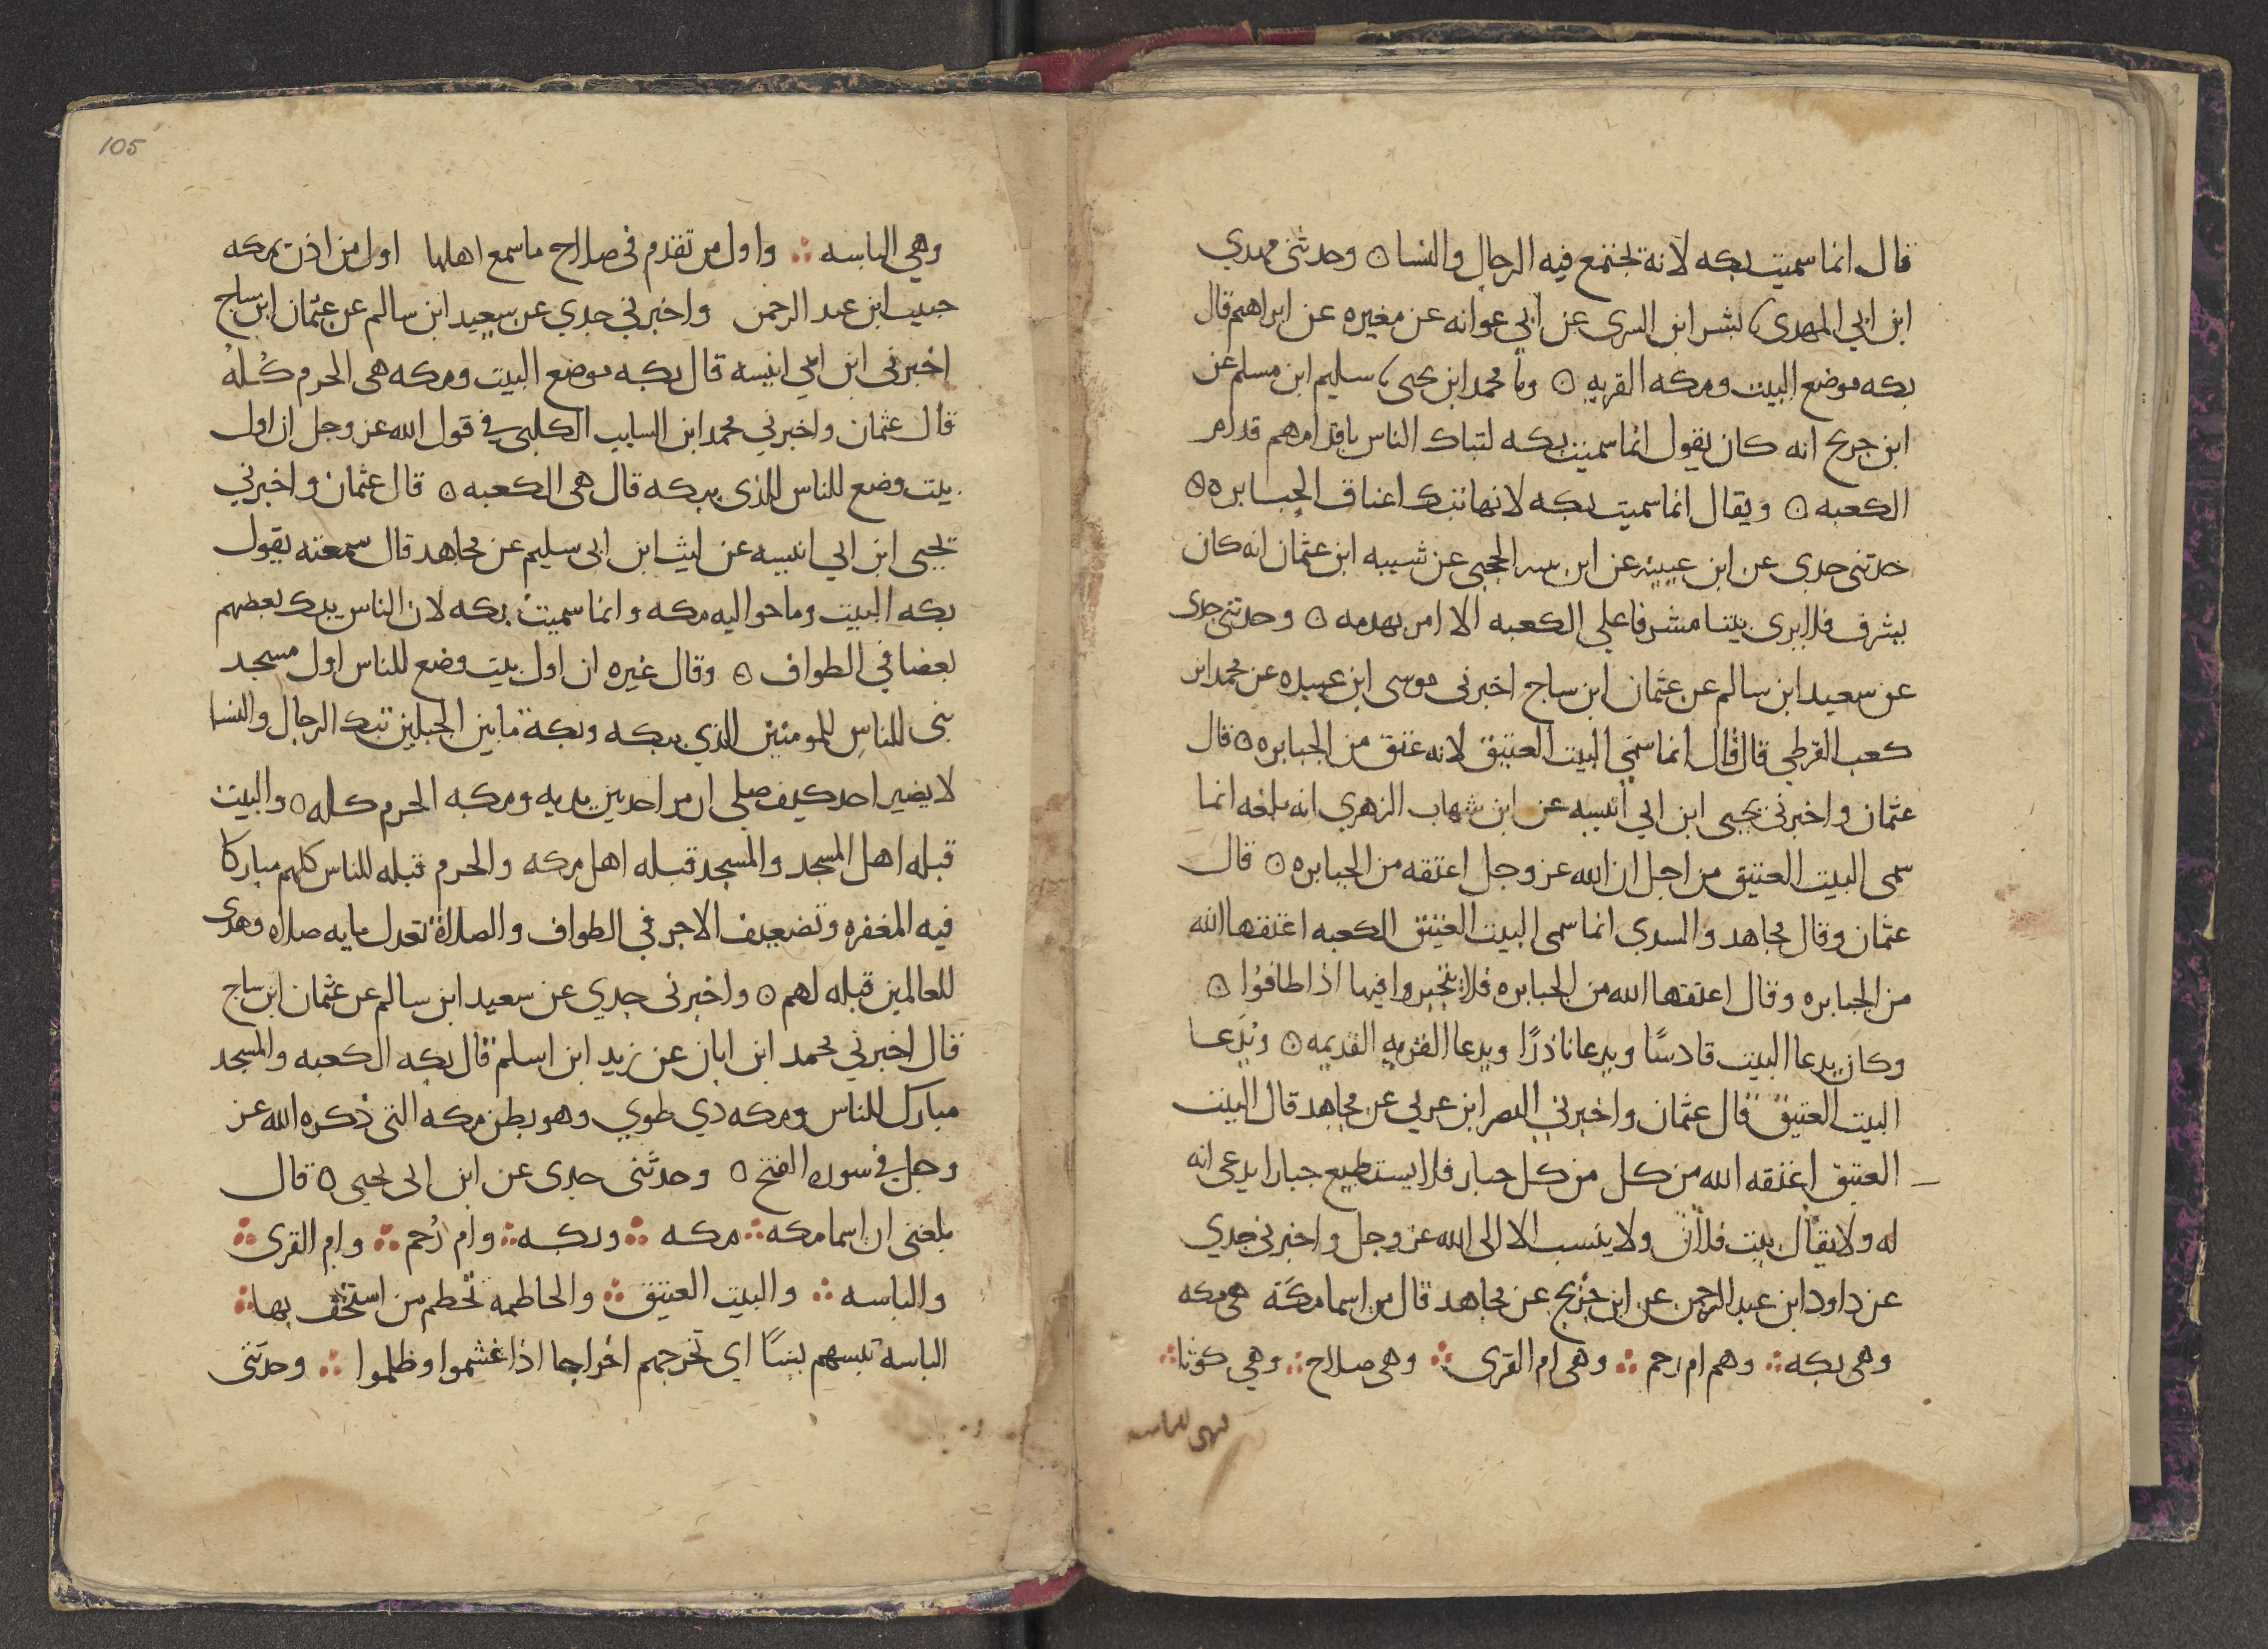 قال انما سميت بكه لانه تجتمع فيه الرجال والنسا ۝ وحدثني مهدي
ابن ابي المهدي بشر ابن السرى عن ابي عوانه عن مغيره عن ابراهيم قال
بكه موضع البيت ومكه القريه ۝ محمد ابن يحيى سليم ابن مسلم عن
ابن جريج انه كان يقول انما سميت بكه لتباك الناس باقدامهم قدام
الكعبه ۝ ويقال انما سميت بكه لانها تبك اعناق الجبابره ۝
حدثني جدي عن ابن عيينه عن ابن الحجبي عن شيبه ابن عثمان انه كان
يشرف فلا يرى بيتا مشرفا علي الكعبه الا امر بهدمه ۝ وحدثني جدي
عن سعيد ابن سالم عن عثمان ابن ساج اخبرني موسى ابن عبيده عن محمد ابن
كعب القرظي قال قال انما سمي البيت العتيق لانه عتق من الجبابره ۝ قال
عثمان واخبرني يحيى ابن ابي انيسه عن ابن شهاب الزهري انه بلغه انما
سمى البيت العتيق من اجل ان الله عز وجل اعتقه من الجبابره ۝ قال
عثمان وقال مجاهد والسدي انما سمى البيت العتيق الكعبه اعتقها الله
من الجبابره وقال اعتقها الله من الجبابره فلا يتجبروا فيها اذا طافوا ۝
وكان يدعا البيت قادسًا ويدعا ناذرًا ويدعا القريه القديمه ۝ ويُدَعا
البيت العتيق قال عثمان واخبرني النصر ابن عربي عن مجاهد قال البيت
العتيق اعتقه الله من كل من كل جبار فلا يستطيع جبارا يدعى انه
له ولا يقال بيت فلان ولا ينسب الا الى الله عز وجل واخبرني جدي
عن داود ابن عبد الرحمن عن ابن جريج عن مجاهد قال من اسما مكَة هي مكه
وهي بكه ؞ وهم ام رحم ؞ وهي ام القرى ؞ وهي صلاح ؞ وهي كوثا ؞
105
وهي الباسه ؞ واول من تقدم في صلاح ما سمع اهلها اول من اذن بمكه
حبيب ابن عبد الرحمن واخبرني جدي عن سعيد ابن سالم عن عثمان ابن ساج
اخبرني ابن ابي انيسه قال بكه موضع البيت ومكه هي الحرم كُلهُ
قال عثمان واخبرني محمد ابن السايب الكلبي في قول الله عز وجل ان اول
بيت وضع للناس للذي ببكه قال هي الكعبه ۝ قال عثمان واخبرني
يحيى ابن ابي انيسه عن ليث ابن ابي سليم عن مجاهد قال سمعته يقول
بكه البيت وما حواليه مكه وانما سميت بكه لان الناس يبك بعضهم
بعضا في الطواف ۝ وقال غيره ان اول بيت وضع للناس اول مسجد
بني للناسِ للمومنين للذي ببكه وبكة ما بين الجبلين تبك الرجال والنسا
لا يضير احد كيف صلى ان مر احد بين يديه ومكه الحرم كله ۝ والبيت
قبله اهل المسجد والمسجد قبله اهل مكه والحرم قبله للناس كلهم مباركا
فيه المغفره وتضعيف الاجر في الطواف والصلاة تعدل مايه صلاه وهدى
للعالمين قبله لهم ۝ واخبرني جدي عن سعيد ابن سالم عن عثمان ابن ساج
قال اخبرني محمد ابن ابان عن زيد ابن اسلم قال بكه الكعبه والمسجد
مبارك للناس ومكه ذي طوي وهو بطن مكه التي ذكره الله عز
وجل في سوره الفتح ۝ وحدثني جدي عن ابن ابي يحيى ۝ قال
بلغني ان اسما مكه ؞ مكه ؞ وبكه ؞ وام رُحم ؞ وام القرى ؞
والباسه ؞ والبيت العتيق ؞ والحاطمه تحُطم من استخف بها ؞
الباسه تبسهم بسًا اي تخرجهم اخراجا اذا غشموا وظلموا ؞ وحدثني